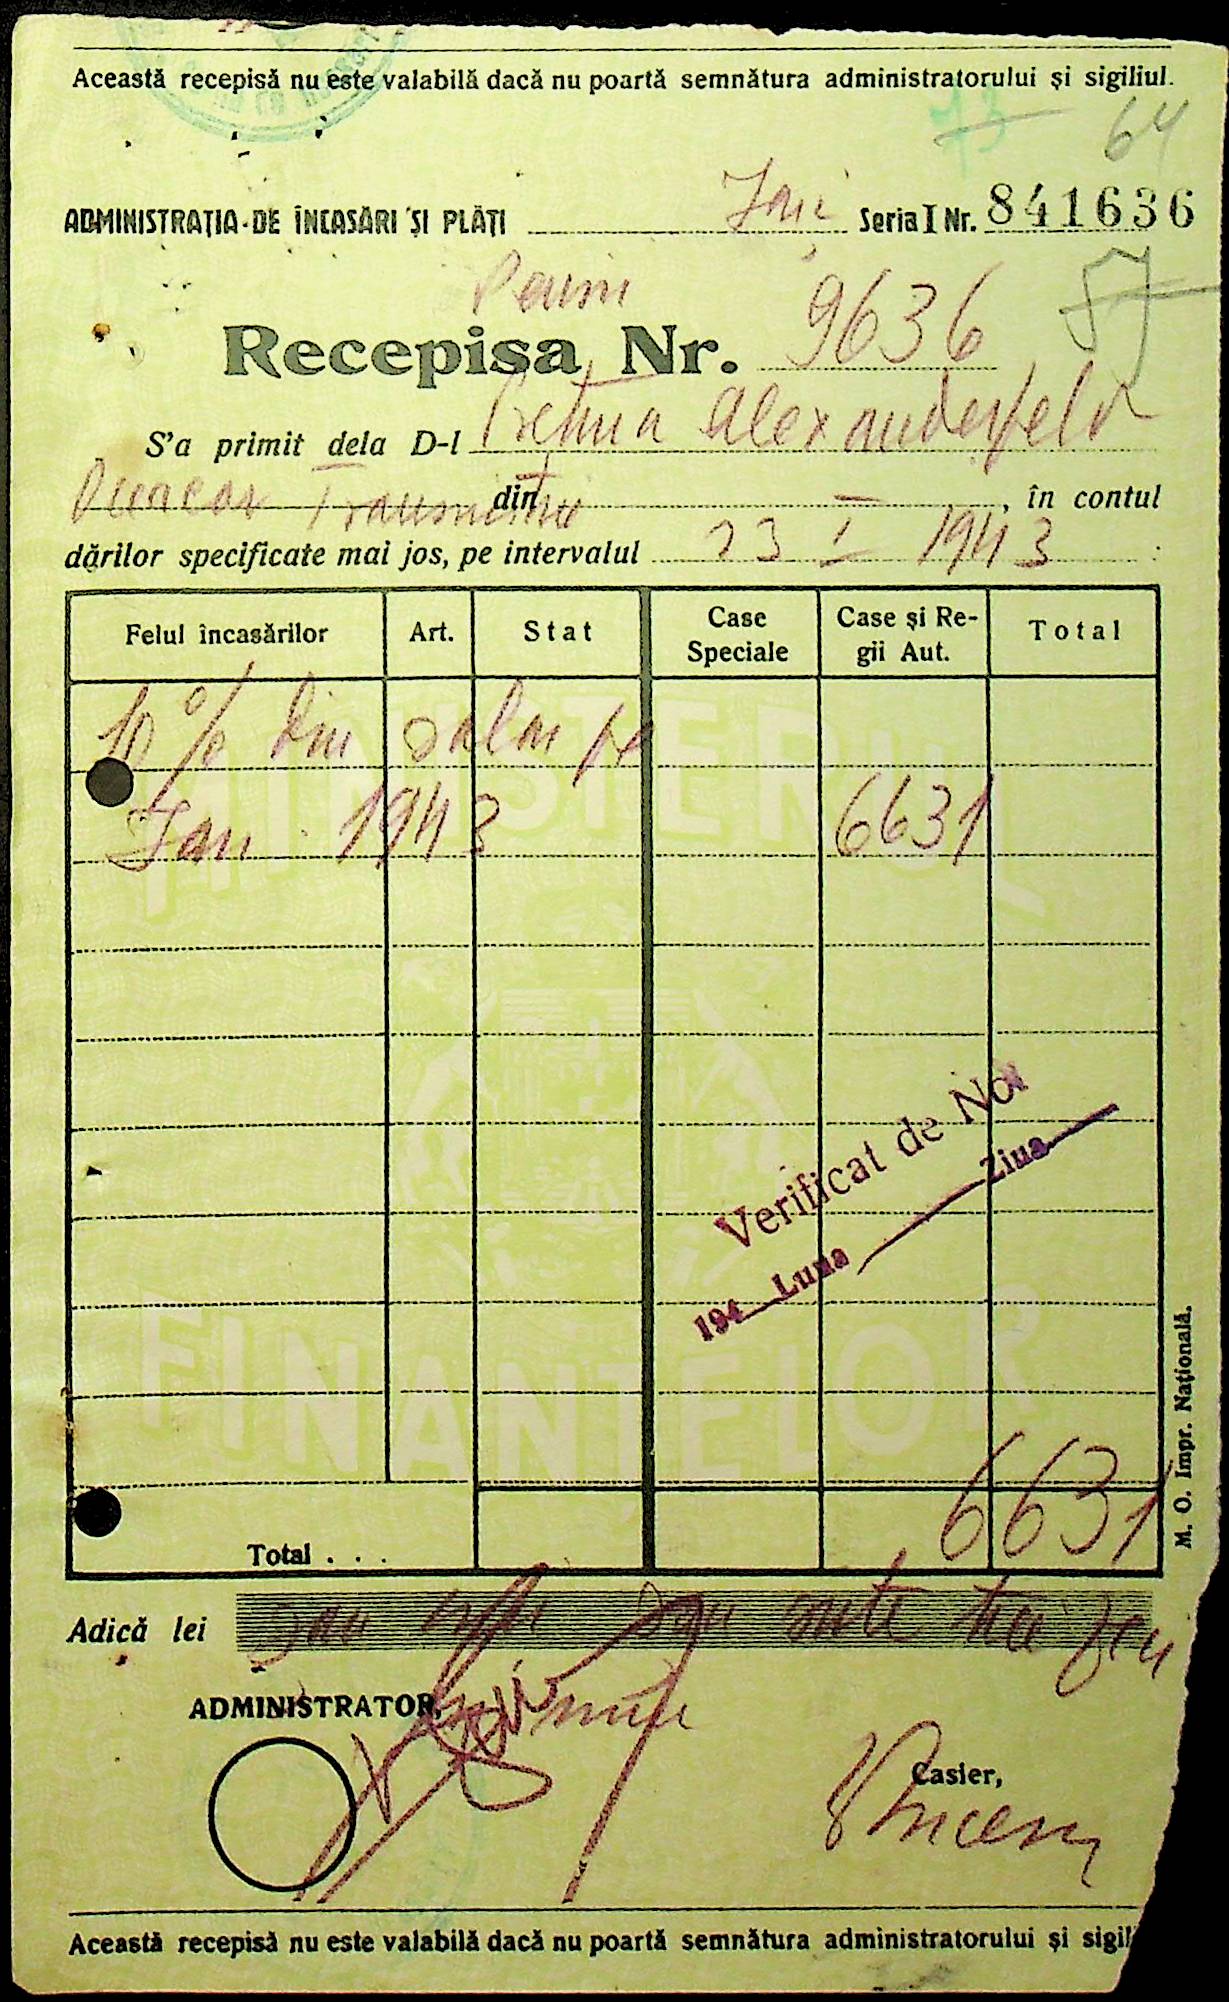 Această recepisă nu este valabilă dacă nu poartă semnătura administratorului și sigiliul.
73 64
ADMINISTRAȚIA DE ÎNCASĂRI ȘI PLĂȚI Seria I Nr. 841636
57
Recepisa Nr. 9636
S'a primit dela D-l Alexanderfeld
din , în contul
dărilor specificate mai jos, pe intervalul 23 I 1943
Felul încasărilor Art. Stat Case Speciale Case și Regii Aut. Total
10 % din salar pe
Ian 1943 6631
MINISTERUL
FINANȚELOR
Verificat de Noi
194 Luna Ziua
Total . . . 6631
Adică lei sute trei zeci
ADMINISTRATOR,
Casier,
M. O. Impr. Națională.
Această recepisă nu este valabilă dacă nu poartă semnătura administratorului și sigil